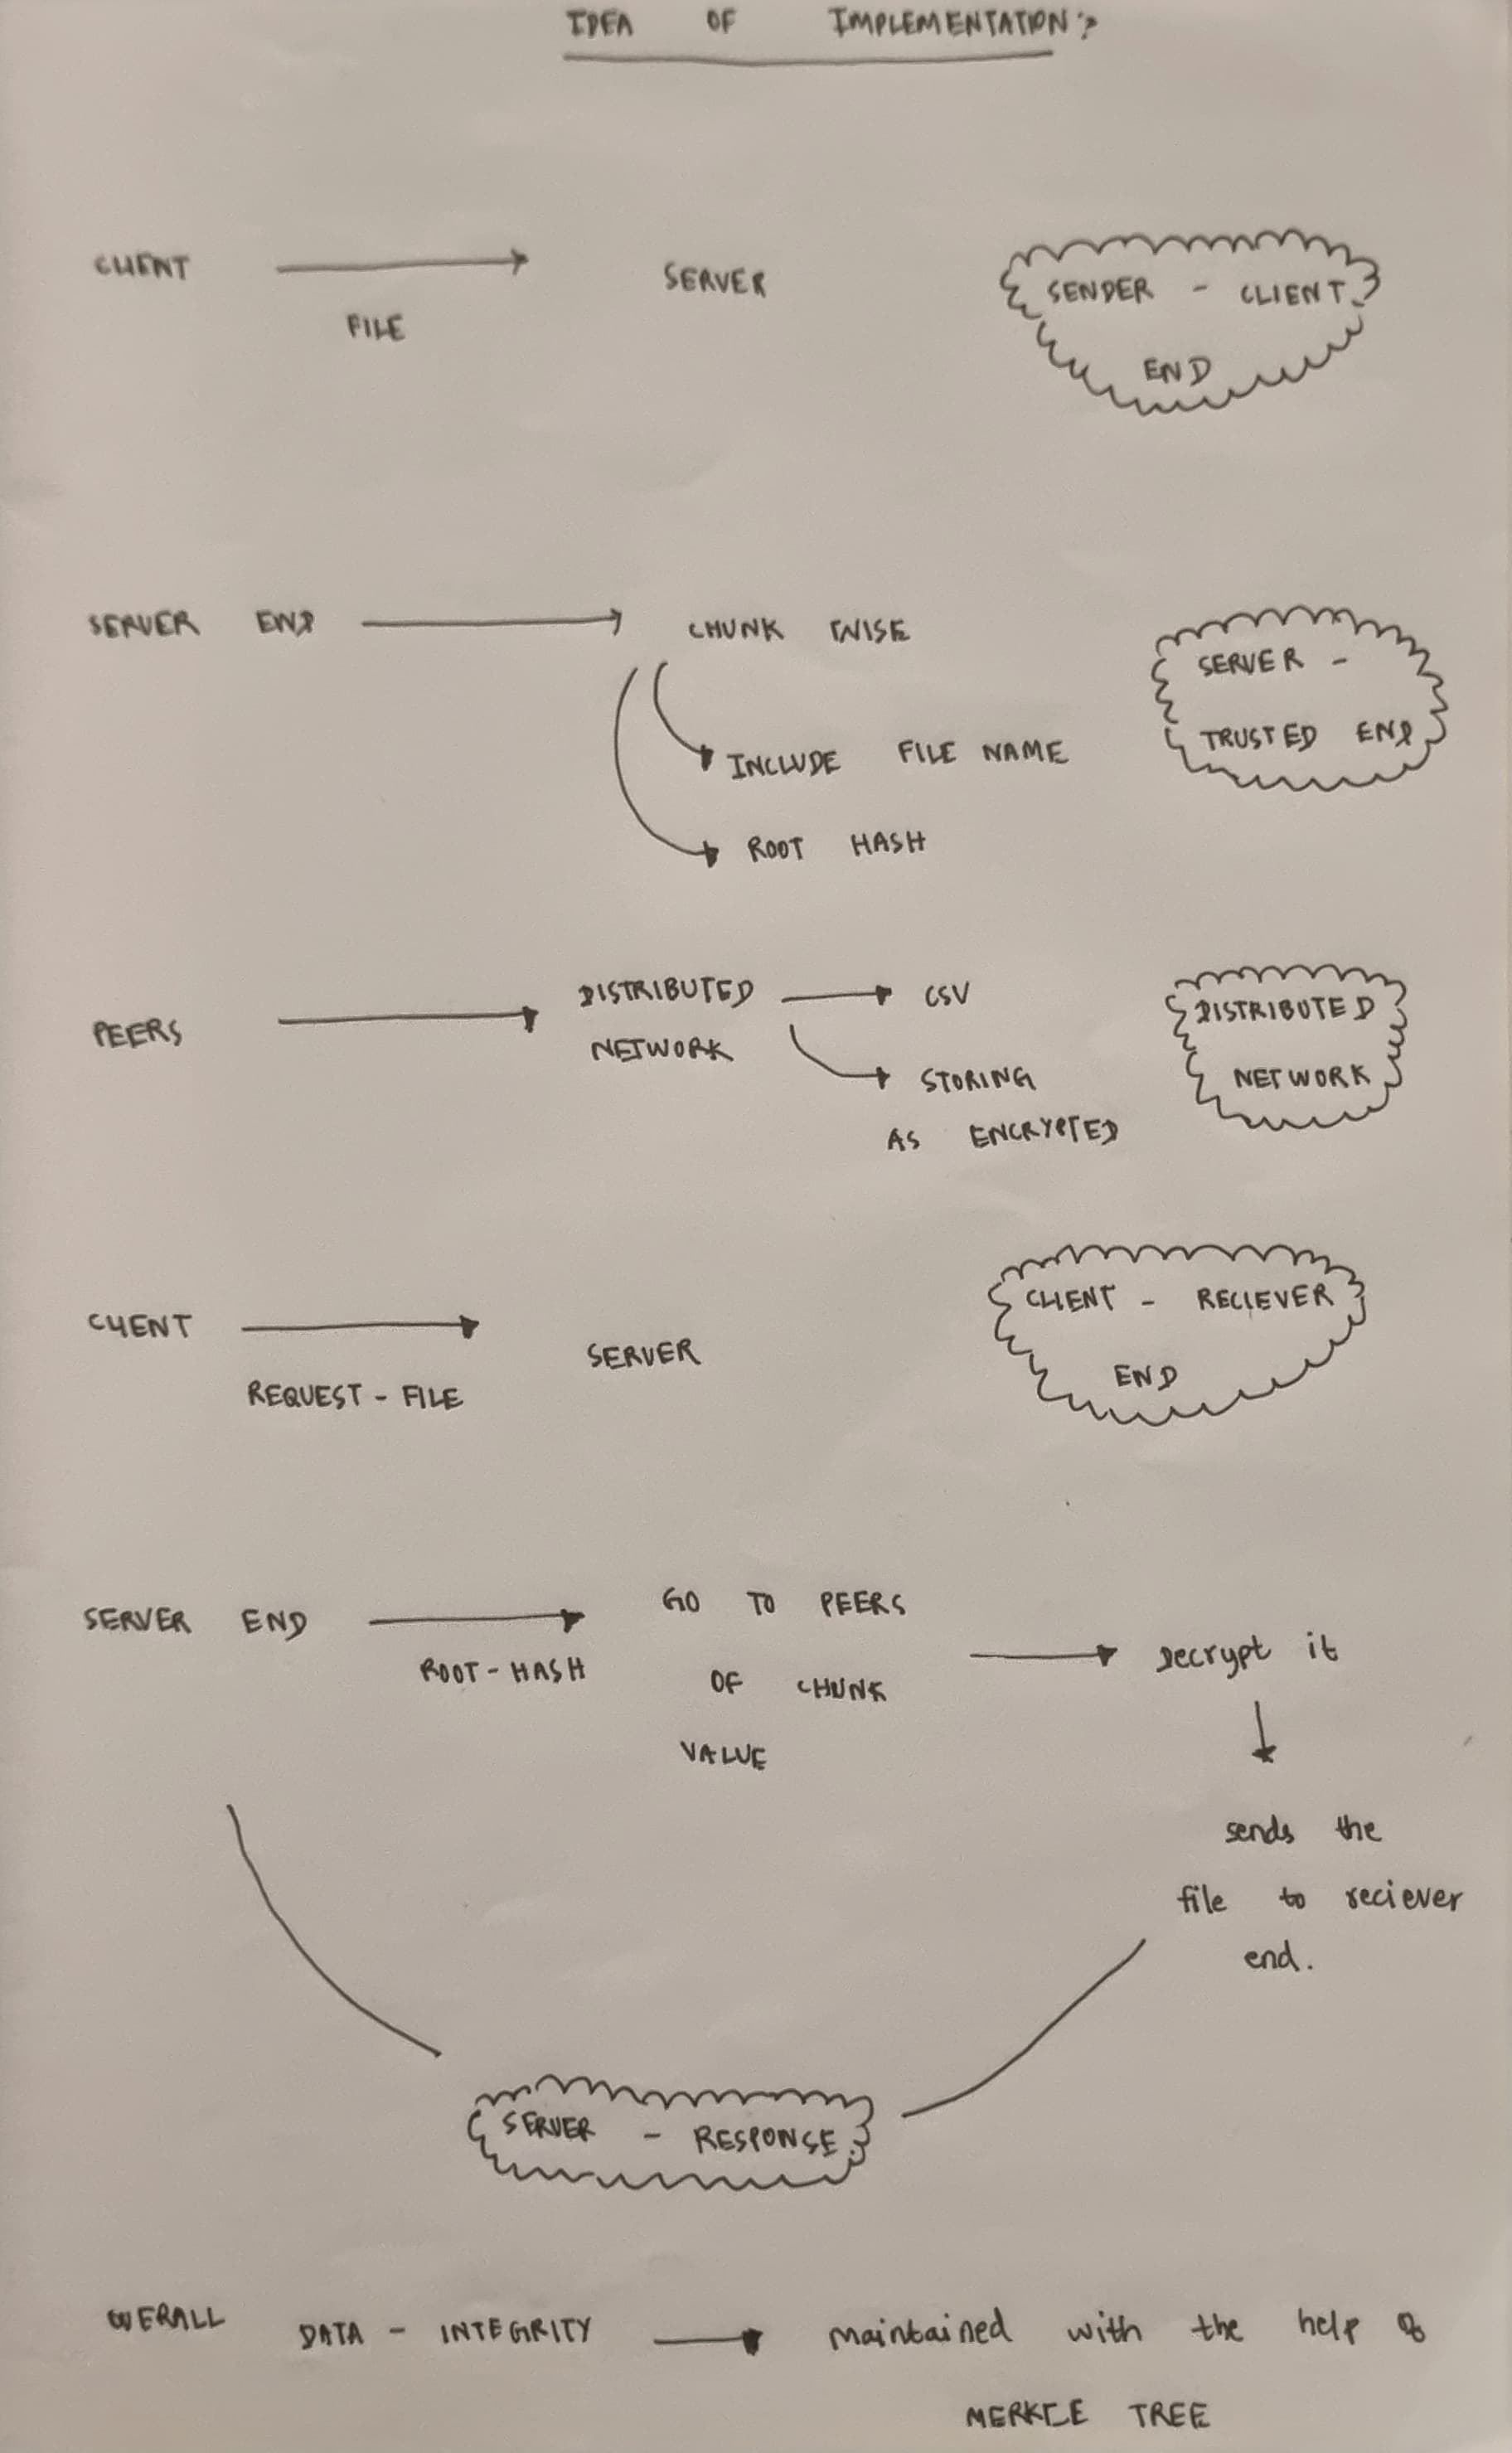 IDEA OF IMPLEMENTATION:
CLIENT SERVER
FILE
SENDER - CLIENT
END
SERVER END CHUNK WISE
INCLUDE FILE NAME
ROOT HASH
SERVER -
TRUSTED END
PEERS
DISTRIBUTED
NETWORK
CSV
STORING
AS ENCRYPTED
DISTRIBUTED
NETWORK
CLIENT SERVER
REQUEST - FILE
CLIENT - RECIEVER
END
SERVER END
ROOT - HASH
GO TO PEERS
OF CHUNK
VALUE
Decrypt it
sends the
file to reciever
end.
SERVER - RESPONSE
OVERALL DATA - INTEGRITY maintained with the help of
MERKLE TREE